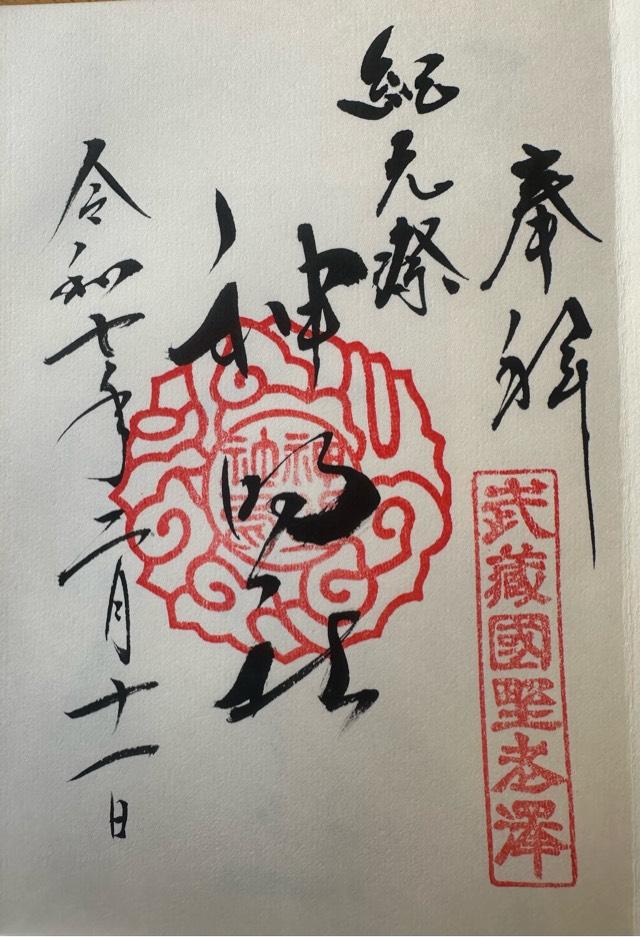 奉拝
武藏國野老澤
紀元祭
神明社
令和七年二月十一日